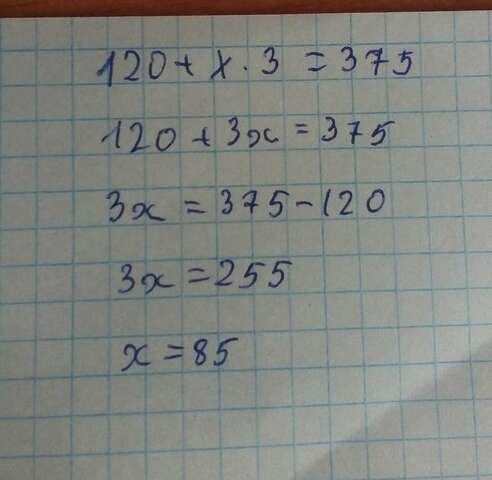 120 + x · 3 = 375
120 + 3x = 375
3x = 375 - 120
3x = 255
x = 85